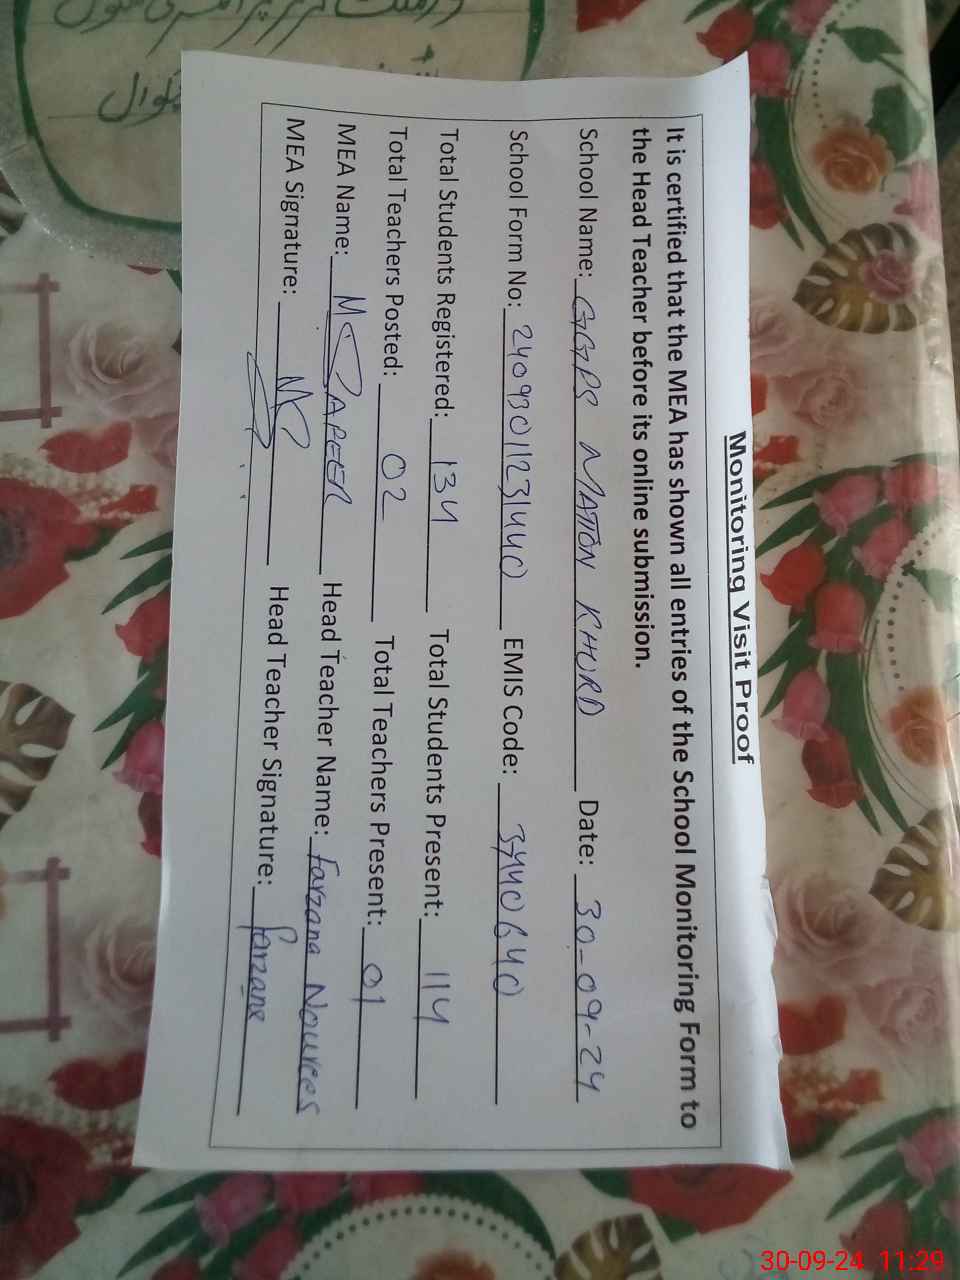 Monitoring Visit Proof
It is certified that the MEA has shown all entries of the School Monitoring Form to
the Head Teacher before its online submission.
School Name: GGPS MATTON KHURD Date: 30-09-24
School Form No: 24093011231440 EMIS Code: 3440640
Total Students Registered: 134 Total Students Present: 114
Total Teachers Posted: 02 Total Teachers Present: 01
MEA Name: Head Teacher Name: Farzana
MEA Signature: Head Teacher Signature: Farzana
30-09-24 11:29